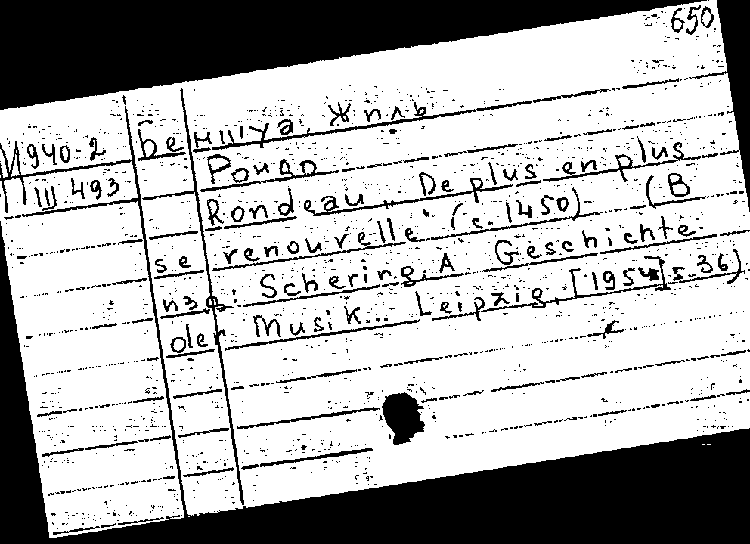 650
И940-2 Беншуа, Жиль
III 493 Рондо
Rondeau „De plus en plus
se renouvelle“ (c. 1450). (В
изд: Schering, A Geschichte
der Musik... Leipzig, [1954] s. 36)